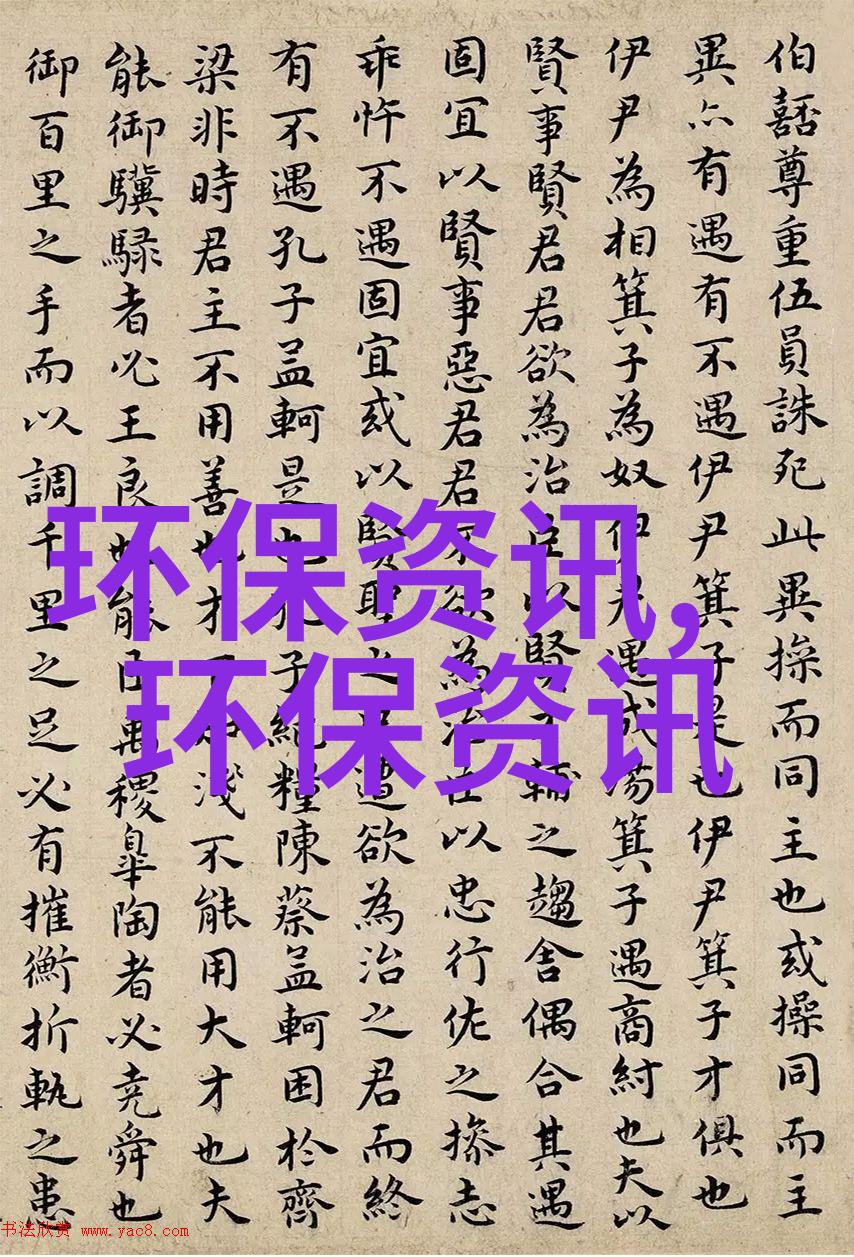 伯嚭尊重伍員誅死此異操而同主也或操同而主
異亦有遇有不遇伊尹箕子是也伊尹箕子才俱也
伊尹為相箕子為奴伊尹遇成湯箕子遇商紂也夫以
賢事賢君君欲為治臣以賢才輔之趨舍偶合其遇
固宜以賢事惡君君不欲為治臣以忠行佐之操志
乖忤不遇固宜或以賢聖之臣遭欲為治之君而終
有不遇孔子孟軻是也孔子絕糧陳蔡孟軻困於齊
梁非時君主不用善也才下知淺不能用大才也夫
能御驥騄者必王良也能臣禹稷皋陶者必堯舜也
御百里之手而以調千里之足必有摧衡折軛之患
环保资讯,
环保资讯
书法欣赏 www.yac8.com